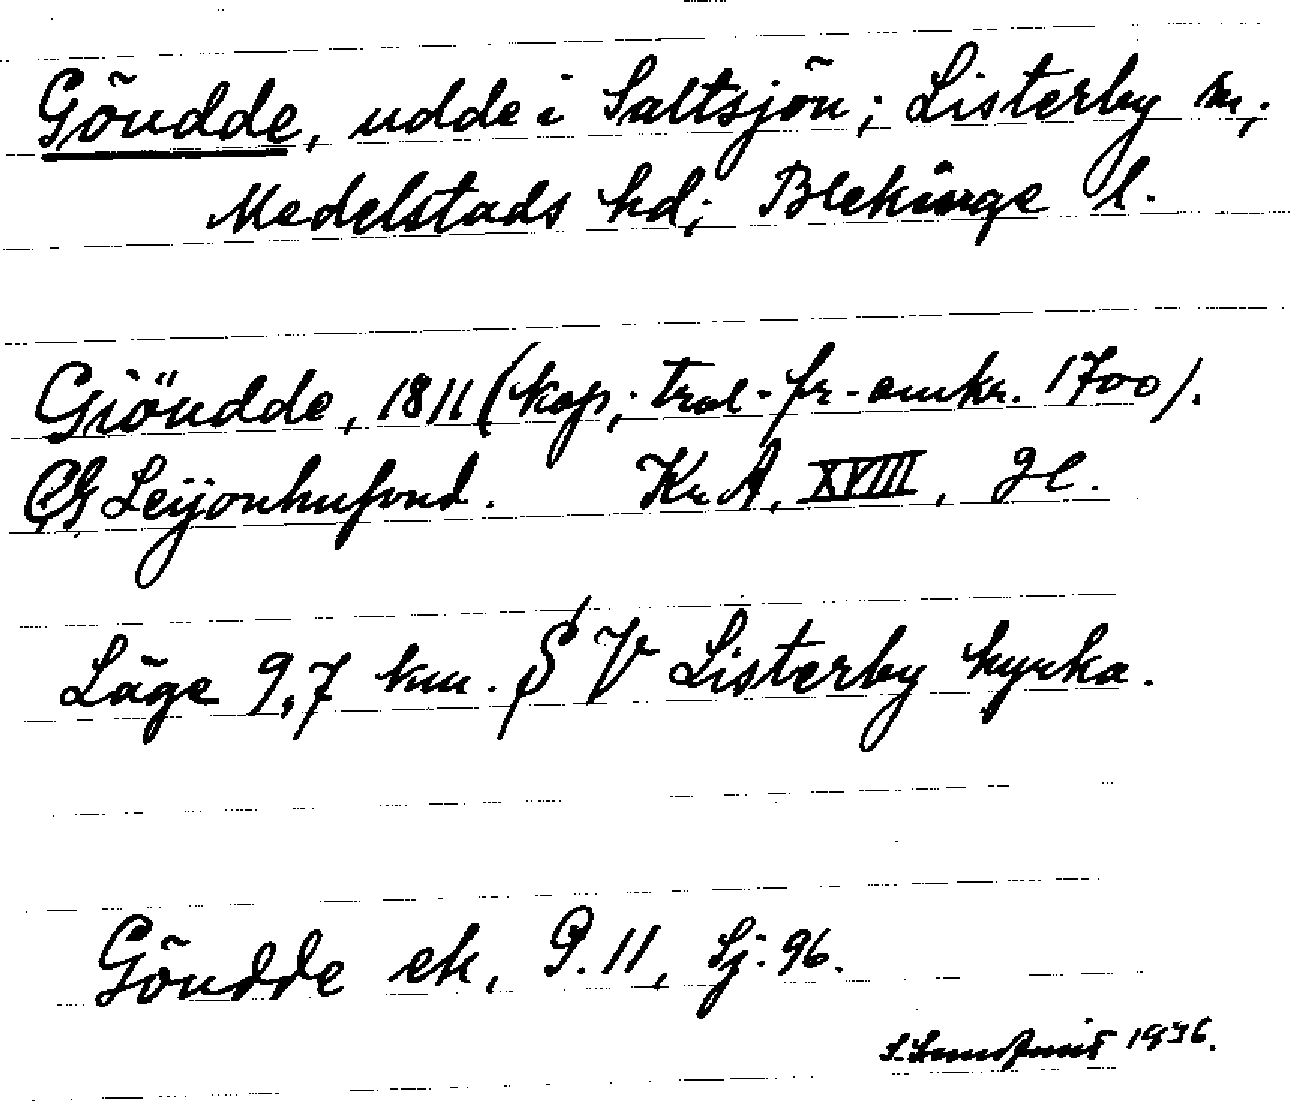 Göudde, udde i Saltsjön; Listerby sn;
Medelstads hd; Blekinge l.
Giöudde, 1811 (kop; trol. fr. omkr. 1700).
CG Leijonhufvud. Kr A, XVIII, 9c.
Läge 9,7 km. S V Listerby kyrka.
Göudde ek, 9.11, Sj: 96.
1936.